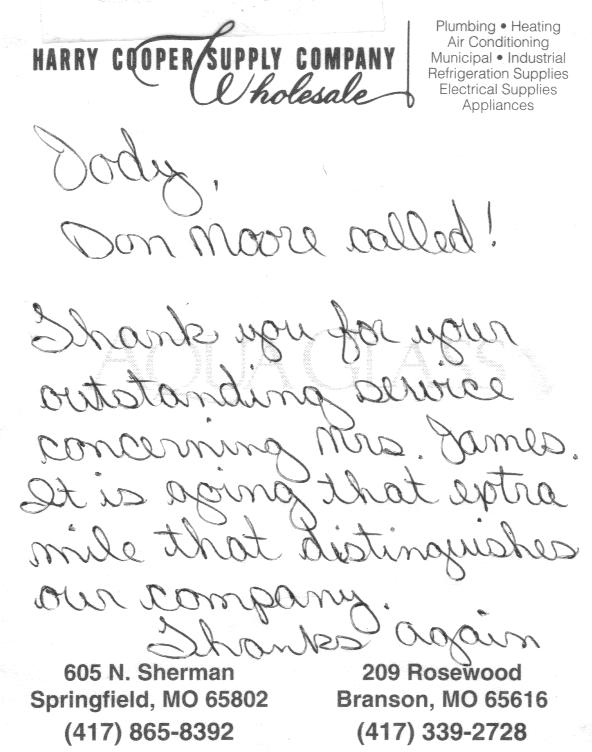 HARRY COOPER SUPPLY COMPANY
Wholesale
Plumbing • Heating
Air Conditioning
Municipal • Industrial
Refrigeration Supplies
Electrical Supplies
Appliances
Jody,
Don Moore called!
Thank you for your
AQUA GLASS
outstanding service
concerning Mrs. James.
It is going that extra
mile that distinguishes
our company.
Thanks again
605 N. Sherman
Springfield, MO 65802
(417) 865-8392
209 Rosewood
Branson, MO 65616
(417) 339-2728